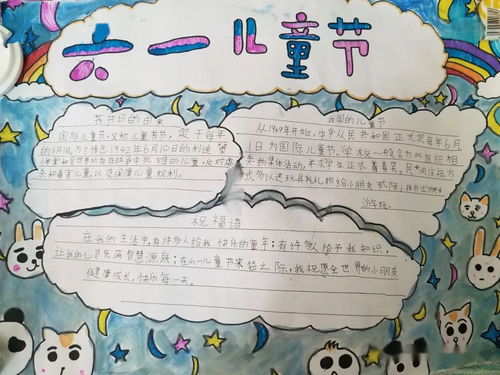 六一儿童节
节日的由来
国际儿童节，又称儿童节，定于每年
的6月1日。为了悼念1942年6月10日的利迪策
和全世界所有在战争中死难的儿童，反对虐
杀和毒害儿童，以及保障儿童权利。
我国的儿童节
从1949年开始，中华人民共和国正式定每年6月
1日为国际儿童节。学校一般会为此组织相
关的集体活动，
式多以送玩具或礼物给小朋友
祝福语
在我的生活中，有许多人给我快乐的童年；有许多人给予我知识，
让我的心灵充满智慧源泉；在六一儿童节来临之际，我祝愿全世界的小朋友
们健康成长，快乐每一天。